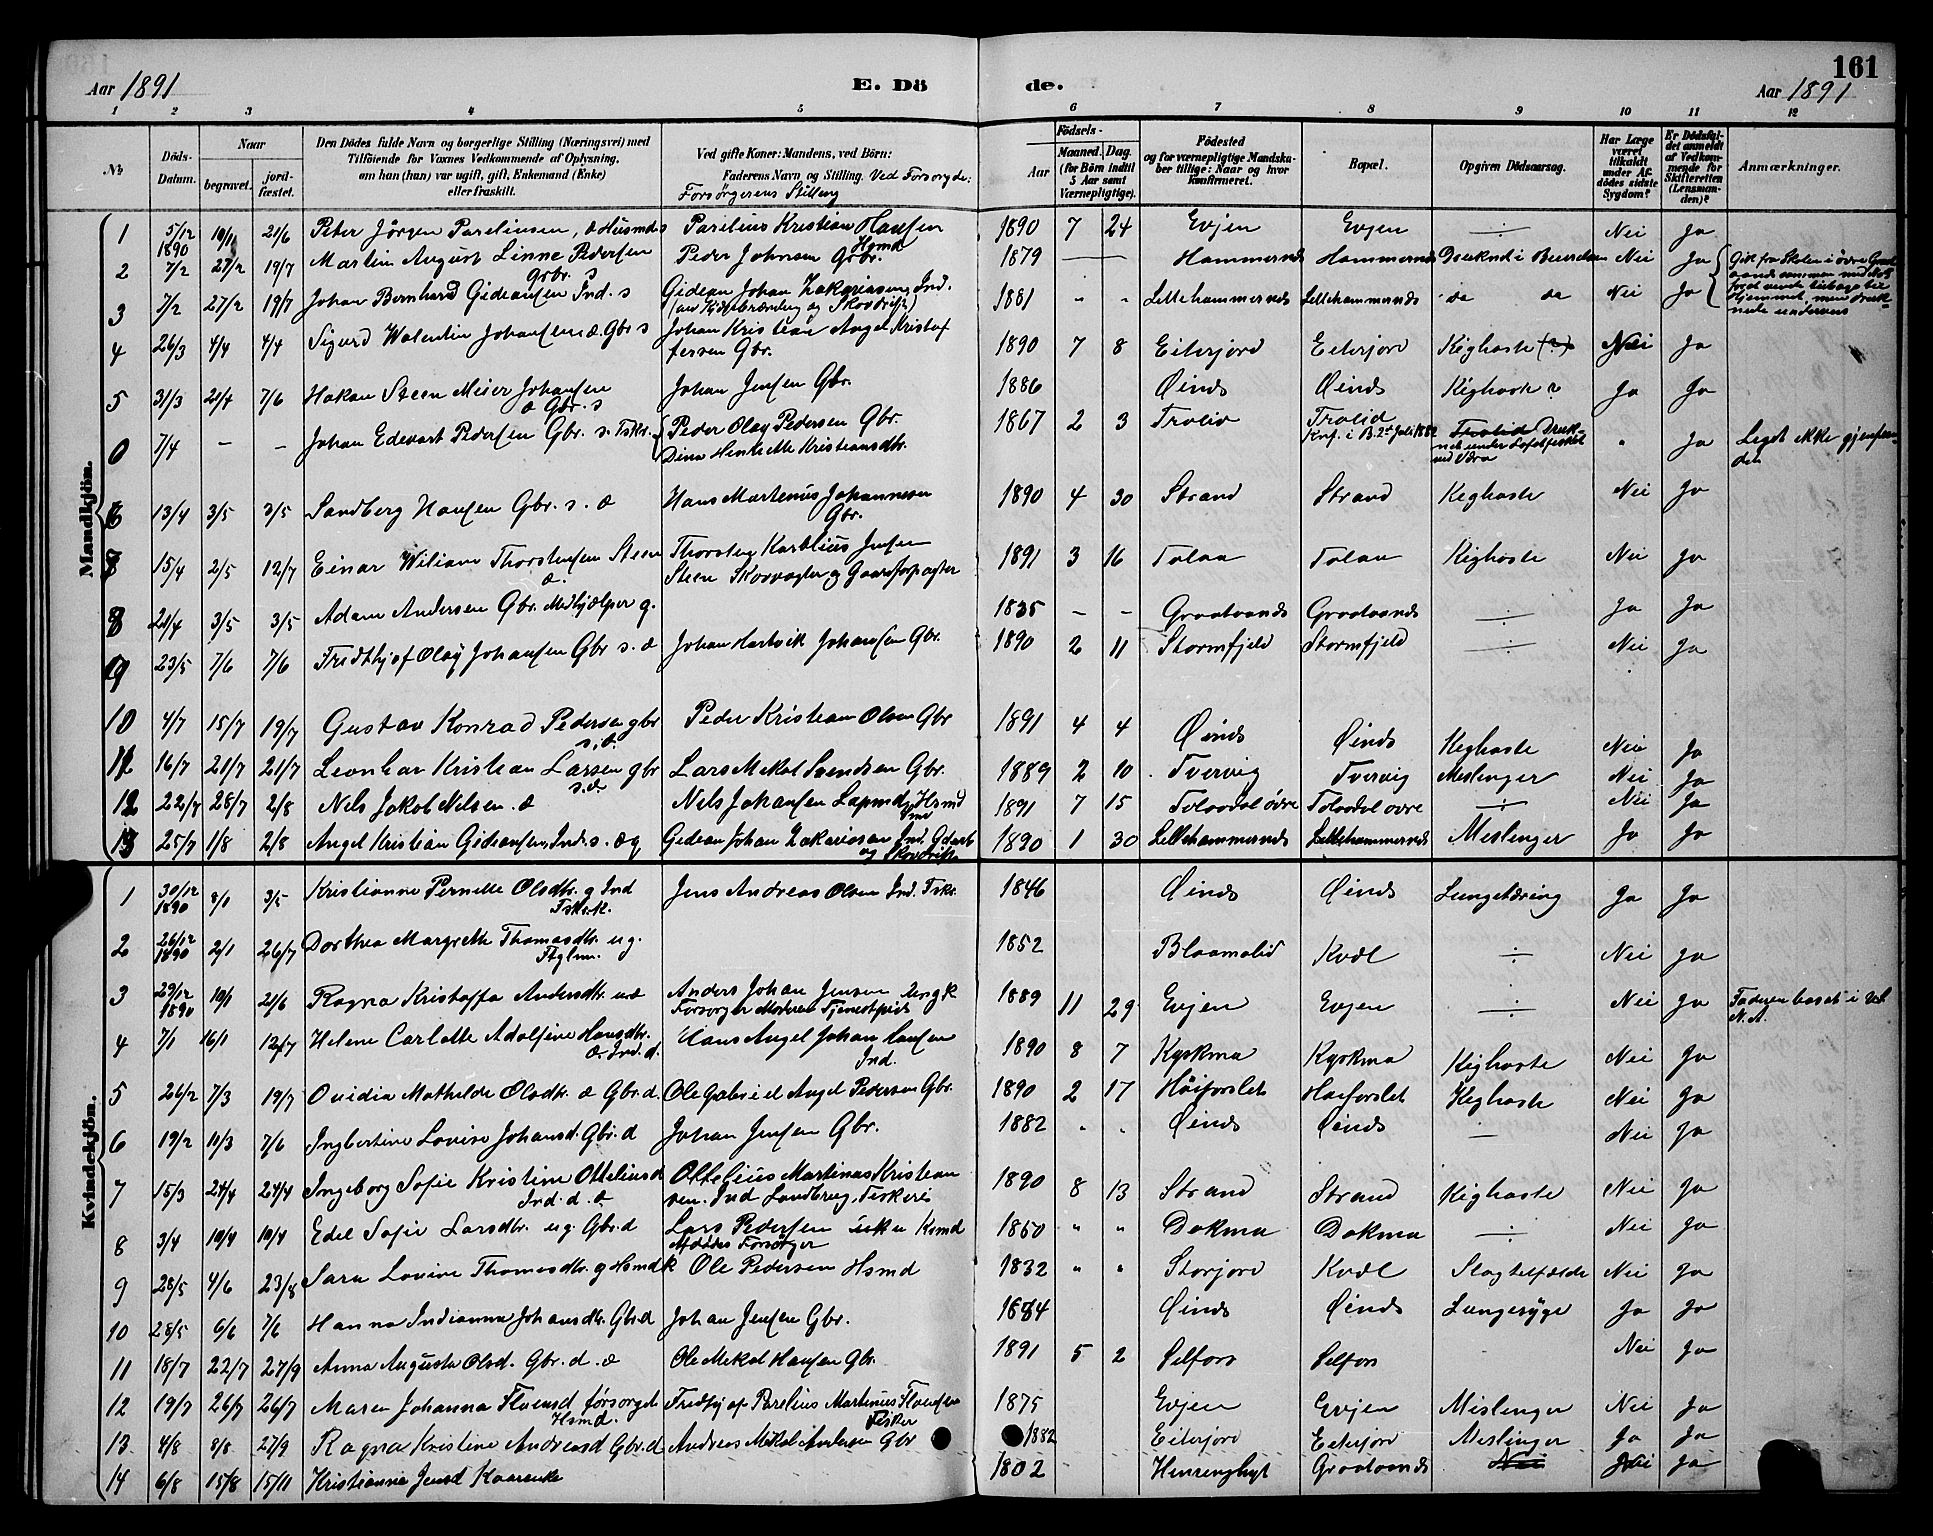 161
Aar 1891 E. Dö de. Aar 1891
1 2 3 4 5 6 7 8 9 10 11 12
No
Döds-Datum.
Naar
begravet.
jordfæstet.
Den Dödes fulde Navn og borgerlige Stilling (Næringsvei) med
Tilföiende for Voxnes Vedkommende af Oplysning,
om han (hun) var ugift, gift, Enkemand (Enke)
eller fraskilt.
Ved gifte Koner: Mandens, ved Börn:
Faderens Navn og Stilling. Ved Forsørgede:
Forsörgerens Stilling
Födsels-
Aar
Maaned. Dag.
(for Börn indtil
5 Aar samt
Værnepligtige).
Födested
og for værnepligtige Mandska-
ber tillige: Naar og hvor
konfirmeret.
Bopæl.
Opgiven Dödsaarsag.
Har Læge
været
tilkaldt
under Af-
dödes sidste
Sygdom?
Er Dödsfal-
det anmeldt
af Vedkom-
mende for
Skifteretten
(Lensman-
den)?
Anmærkninger.
Mandkjön.
1 5/12 1890 10/1 21/6 Peter Jörgen Pareliussen, Husmds Parelius Kristian Hansen Hsmd 1890 7 24 Evjen Evjen ÷ Nei Ja
2 7/2 27/2 19/7 Martin August Linne Pedersen Grbr. s Peder Johnsen Grbr. 1879 — — Hammernes Hammernes Druknet i Beierelven Nei Ja
3 7/2 27/2 19/7 Johan Bernhard Gideonsen Ind. s Gideon Johan Zakariasen Ind. 1881 " " Lillehammernes Lillehammernes do do Nei Ja
4 26/3 4/4 4/4 Sigurd Walentin Johansen æ. Gbr s Johan Kristian Angel Kristof
fersen Gbr. 1890 7 8 Eiterjord Eiterjord Kighoste (?) Nei Ja
5 31/3 21/4 7/6 Hakon Steen Meier Johansen æ Gbr. s Johan Jensen Gbr. 1886 Öinds Öinds Kighoste ? Ja Ja
0 7/4 – – Johan Edevart Pedersen Gbr. s. Fsker Peder Olay Pedersen Gbr.
Dina Henriette Kristiansdtr. 1867 2 3 Trolid Trolid
Knf. i B. 2den Juli 1882 Druk-
net under Lofotfisket
ved Værø " Ja Liget ikke gjenfun-
det
6 13/4 3/5 3/5 Sandberg Hansen Gbr. s. æ Hans Martenus Johannesen
Gbr. 1890 4 30 Strand Strand Kighoste Nei Ja
15/4 2/5 12/7 Einar Wiliam Thorstensen Steen
æ. Thorsten Karelius Jensen
Steen Skovvogter og Gaardforpagter 1891 3 16 Tolaa Tolaa Kighoste Nei Ja
8 21/4 3/5 3/5 Adam Andersen Gbr. Medhjælper g. 1835 – – Graatvands Graatvands ÷ Ja Ja
9 23/5 7/6 7/6 Fridthjof Olay Johansen Gbr s. æ Johan Hartvik Johansen Gbr. 1890 2 11 Stormfjeld Stormfjeld ÷ Nei Ja
10 4/7 15/7 19/7 Gustav Konrad Pedersen gbr
s. æ. Peder Kristian Olsen Gbr 1891 4 4 Öinds Öinds Kighoste Nei Ja
11 16/7 21/7 21/7 Leonhar Kristian Larsen gbr
s. æ. Lars Mekal Svendsen Gbr. 1889 2 10 Tvervig Tvervig Meslinger Nei Ja
12 22/7 28/7 2/8 Nils Jakob Nilsen. æ Nils Johansen Lapmd Hsmd 1891 7 15 Tolaadal övre Tolaadal ovre ÷ Nei Ja
13 25/7 1/8 2/8 Angel Kristian Gideonsen, Ind. s. æg Gideon Johan Zakariasen Ind.
og Skovdrift 1890 1 30 Lillehammernes Lillehammernes Meslinger Ja Ja
Kvindekjön.
1 30/12 1890 3/5 Kristianne Pernille Olsdtr. g Ind
Fsker k. Jens Andreas Olsen Ind. Fsker 1846 Öinds Öinds Lungetæring Ja Ja
2 26/12 1890 2/1 26/7 Dorthea Margrethe Thomasdtr. ug.
1852 Blaamolid Kvæl ÷ Nei Ja
3 29/12 1890 10/1 21/6 Ragna Kristoffa Andersdtr. uæ Anders Johan Jensen Ungk
Forsorger Moderen Tjenestpige 1889 11 29 Evjen Evjen ÷ Nei Ja Faderen bosat i
N. A.
4 7/1 16/1 12/7 Helene Carlotte Adolfine Hansdtr.
æ. Ind. d. Hans Angel Johan Hansen
Ind. 1890 8 7 Kyskmo Kyskmo Kighoste Nei Ja
5 26/2 7/3 19/7 Ovidia Mathilde Olsdtr. æ Gbr. d. Ole Gabriel Angel Pedersen Gbr. 1890 2 17 Höiforslet Hoiforslet Kighoste Nei Ja
6 19/2 11/3 7/6 Ingbertine Lovise Johansd. Gbr. d Johan Jensen Gbr. 1882 " " Öinds Öinds — Nei Ja
7 15/3 24/4 24/4 Ingeborg Sofie Kristine Otteliusd
Ind. d. æ Ottelius Martinus Kristian
sen. Ind Landbrug, Fiskeri 1890 8 13 Strand Strand Kighoste Nei Ja
8 3/4 10/4 10/4 Edel Sofie Larsdtr. ug Gbr. d Lars Pedersen
Afdödes Forsörger 1850 " " Dokmo Dokmo ÷ Nei Ja
9 28/5 4/6 23/8 Sara Lovise Thomasdtr. g Hsmd k Ole Pedersen Hsmd 1832 " " Storjord Kvæl Slagtilfælde Nei Ja
10 28/5 6/6 7/6 Hanna Indianna Johansdtr. Gbr. d Johan Jensen Gbr. 1884 Öinds Öinds Lungesyge Ja Ja
11 18/7 22/7 27/9 Anna Augusta Olsd. Gbr. d. æ Ole Mekal Hansen Gbr. 1891 5 2 Selfors Selfors Nei Ja
12 19/7 26/7 26/7 Maren Johanna Floensd forsörget
Hsmd. Fridthjof Parelius Martinus Floensen
Fisker 1875 Evjen Evjen Mislinger Nei Ja
13. 4/8 8/8 27/9 Ragna Kristine Andreasd Gbr. d Andreas Mikal Andersen Gbr 1882 Eiterjord Eiterjord Meslinger Ja Ja
14 6/8 15/8 15/11 Kristianna Jensd Kaarenke 1802 Graatvands Nei Nei Ja